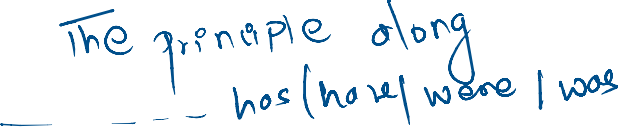 The principle along
_ _ _ _ _ has/have/were/was